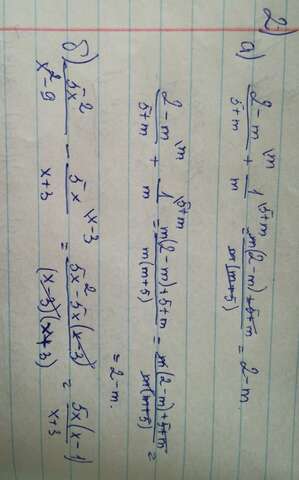 2)
а) (2-m)/(5+m) \m + 1/m \5+m = (m(2-m)+5+m)/(m(m+5)) = 2-m
(2-m)/(5+m) \m + 1/m \5+m = (m(2-m)+5+m)/(m(m+5)) = (m(2-m)+5+m)/(m(m+5)) =
= 2-m.
б) 5x²/(x²-9) - 5x/(x+3) \x-3 = (5x²-5x(x-3))/((x-3)(x+3)) = 5x(x-1)/(x+3)